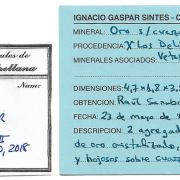 ales de
rellana
Name:
II
, 2018
IGNACIO GASPAR SINTES - C
MINERAL: Oro s/cuarzo
PROCEDENCIA: Los Del
MINERALES ASOCIADOS: Veta
DIMENSIONES: 4,7 x 1,8 x 3,
OBTENCION: Raúl Sanab
FECHA: 23 de mayo de
DESCRIPCION: 2 agregad
de oro cristalizado,
y hojosos sobre cuar